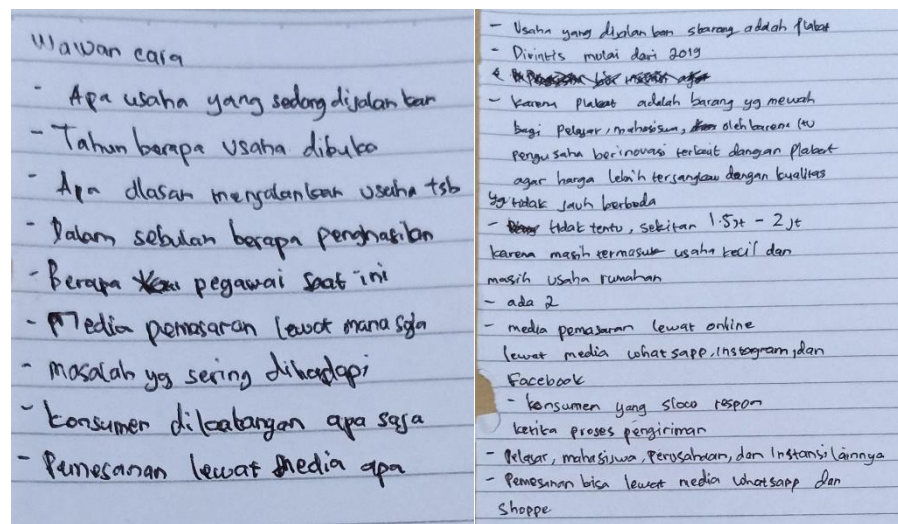 Wawan cara
- Apa usaha yang sedang dijalan kan
- Tahun berapa usaha dibuka
- Apa alasan menjalankan usaha tsb
- Dalam sebulan berapa penghasilan
- Berapa pegawai saat ini
- Media pemasaran lewat mana saja
- masalah yg sering dihadapi
- konsumen dikalangan apa saja
- Pemesanan lewat media apa
- Usaha yang dijalan kan skarang adalah plakat
- Dirintis mulai dari 2019
- karena plakat adalah barang yg mewah
bagi pelajar, mahasiswa, oleh karena itu
pengusaha berinovasi terkait dangan plakat
agar harga lebih terjangkau dengan kualitas
yg tidak jauh berbeda
- tidak tentu, sekitar 1.5 jt - 2 jt
karena masih termasuk usaha kecil dan
masih usaha rumahan
- ada 2
- media pemasaran lewat online
lewat media whatsapp, instagram, dan
Facebook
- konsumen yang sloco respon
ketika proses pengiriman
- Pelajar, mahasiswa, perusahaan, dan Instansi lainnya
- Pemesanan bisa lewat media whatsapp dan
shoppe